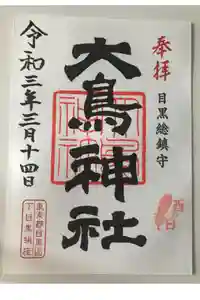 奉拝
目黒総鎮守
酉の日
大鳥神社
令和三年三月十四日
東京都目黒区
下目黒鎮座